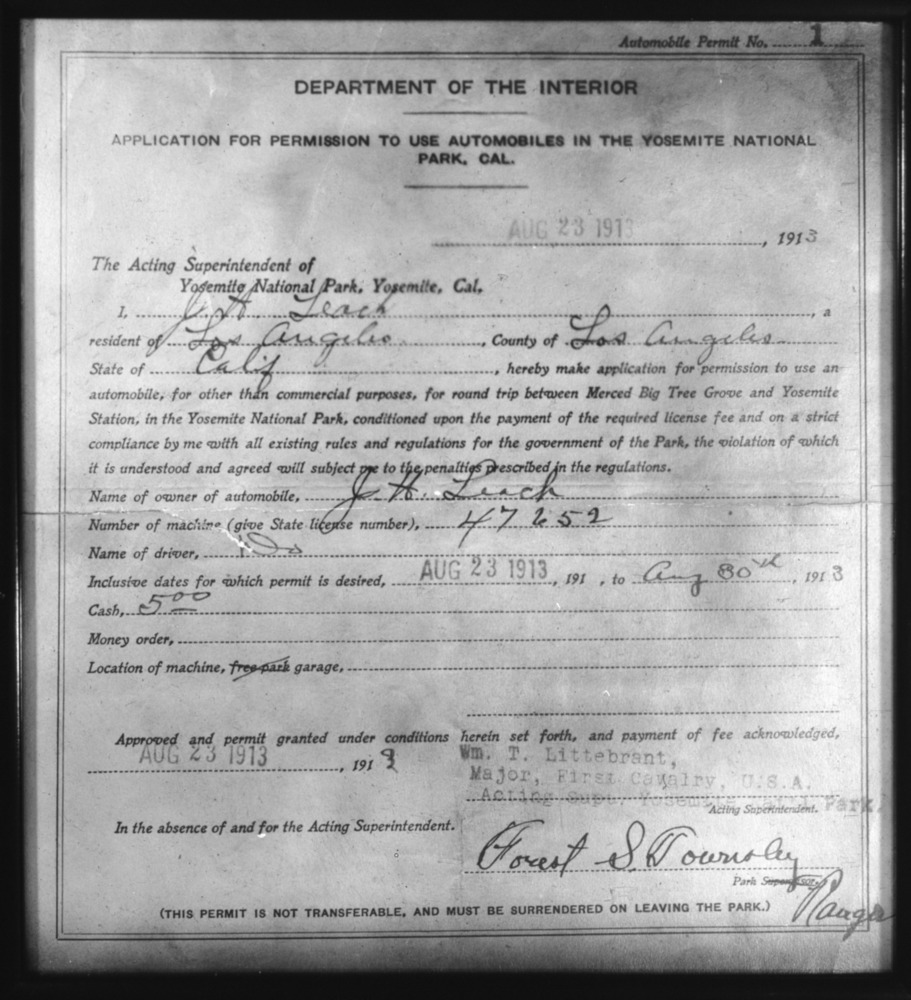 Automobile Permit No. 1
DEPARTMENT OF THE INTERIOR
APPLICATION FOR PERMISSION TO USE AUTOMOBILES IN THE YOSEMITE NATIONAL
PARK, CAL.
AUG 23 1913, 1913
The Acting Superintendent of
Yosemite National Park, Yosemite, Cal.
I, J. H. Leach, a
resident of Los Angeles, County of Los Angeles
State of Calif, hereby make application for permission to use an
automobile, for other than commercial purposes, for round trip between Merced Big Tree Grove and Yosemite
Station, in the Yosemite National Park, conditioned upon the payment of the required license fee and on a strict
compliance by me with all existing rules and regulations for the government of the Park, the violation of which
it is understood and agreed will subject me to the penalties prescribed in the regulations.
Name of owner of automobile, J. H. Leach
Number of machine (give State license number), 47652
Name of driver, Do
Inclusive dates for which permit is desired, AUG 23 1913, 191 , to Aug 30th, 1913
Cash, 5 00
Money order,
Location of machine, free park garage,
Approved and permit granted under conditions herein set forth, and payment of fee acknowledged,
AUG 23 1913, 1913
Wm. T. Littebrant,
Major, First Cavalry, U.S.A.
Acting Supt. Yosemite Park.
Acting Superintendent.
In the absence of and for the Acting Superintendent.
Forest S. Townsley
Park Supervisor.
Ranger
(THIS PERMIT IS NOT TRANSFERABLE, AND MUST BE SURRENDERED ON LEAVING THE PARK.)